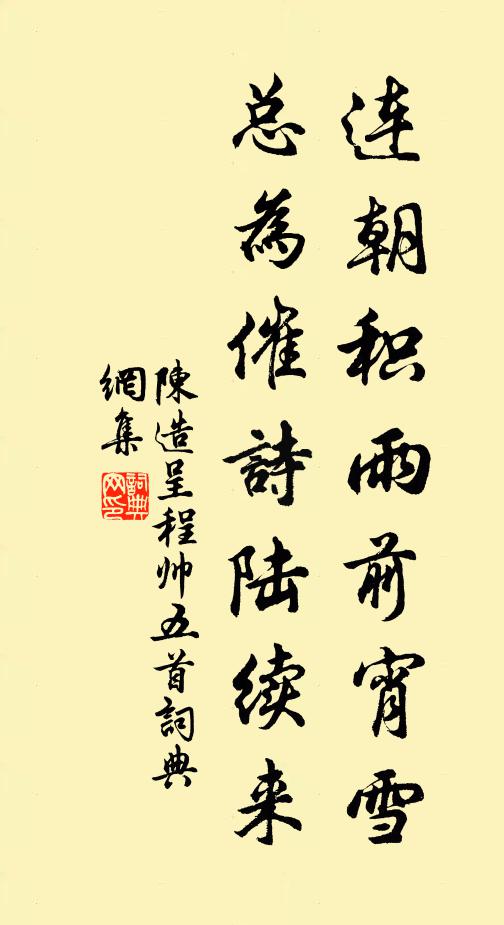 连朝积雨前宵雪
总为催詩陆续来
陳造呈程帅五首詞典
網集
詞典网印